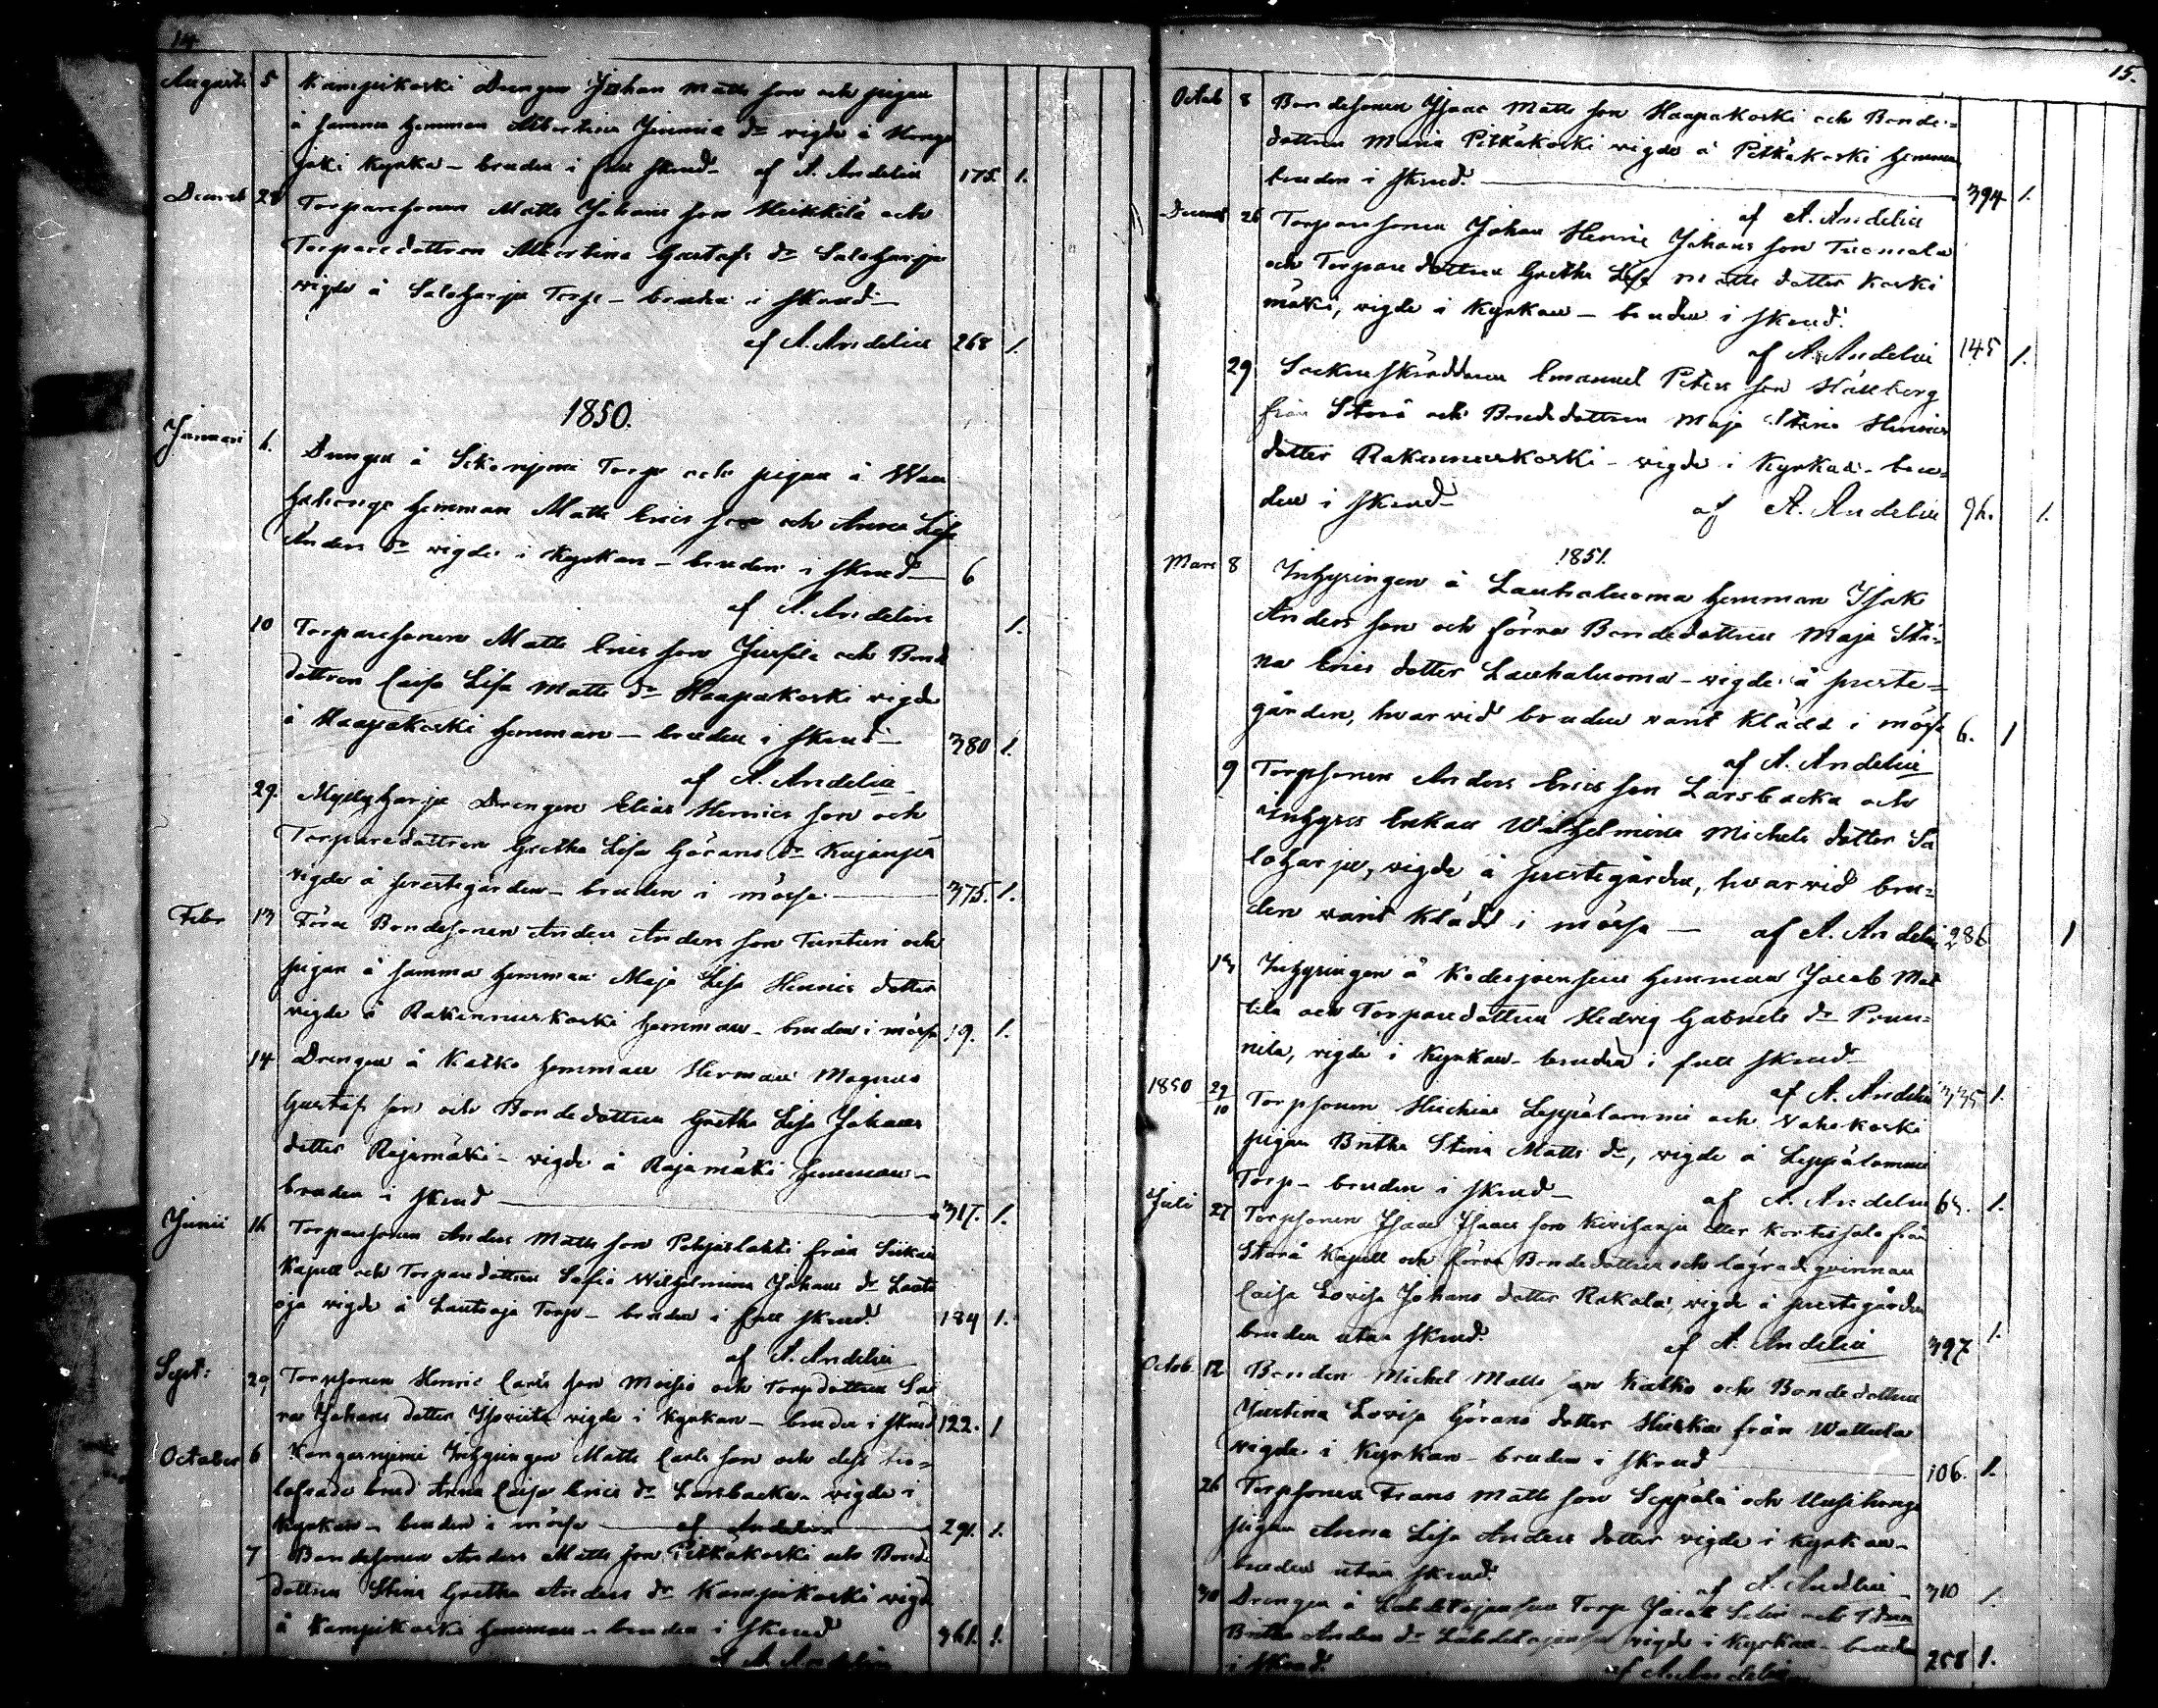 14
Augusti 5 Kampikoski Drengen Johan Matts son och pigan
å samma hemman Albertina Jeremia dr vigde i Honga
joki Kyrka - bruden i full skrud - af A. Andelin 175. 1.
Decemb 28 Torparesonen Matts Johans son Heikkilä och
Torparedottren Albertina Gustafs dr Saloharju
vigde å Saloharju Torp - bruden i skrud -
af A. Andelin 268 1.
1850.
Januari 6. Drengen å Sikaniemi Torp och pigan å Wan
hahonga hemman Matts Erics son och Anna Lisa
Anders dr vigde i Kyrkan - bruden i skrud - 6
af A. Andelin 1.
10 Torparesonen Matts Erics son och Bond
dottren Caisa Lisa Matts dr Haapakoski vigde
å Haapakoski hemman - bruden i skrud - 380 1.
af A. Andelin
29. Myllyharju Drengen Elias Henrics son och
Torparedottren Gretha Lisa Görans dr Kujanpä
vigde å prestegården - bruden i mössa - 375. 1.
Febr 13 Förre Bondesonen Anders Anders son Tunturi och
pigan å samma hemman Maja Lisa Henrics dotter
vigde å Rakennuskoski hemman - bruden i mössa 19. 1.
14 Drengen å Katko hemman Herman Magnus
Gustafs son och Bondedottren Gretha Lisa Johans
dotter Rajamäki - vigde å Rajamäki hemman -
bruden i skrud - 317. 1.
Junii 16 Torparesonen Anders Matts son Pohjaslahti från
Kapell och Torparedottren Sofia Wilhelmina Johans dr Lauta
oja vigde å Lautaoja Torp - bruden i full skrud. 184 1.
af A. Andelin
Sept: 29 Torpsonen Henric Carls son Moisio och Torpdottren Sa
ra Johans dotter vigde i Kyrkan - bruden i skrud 122. 1
October 6 Kangasniemi Inhysingen Matts Carls son och dess tro-
lofvade brud Anna Caisa Erics dr Larsbacka - vigde i
Kyrkan - bruden i mössa - af Andelin 291. 1.
7 Bondesonen Anders Matts son Pitkäkoski och Bond
dottren Stina Gretha Anders dr Kampikoski vigde
å Kampikoski hemman - bruden i skrud 361. 1.
af A. Andelin
15.
Octob 8 Bondesonen Isaac Matts son Haapakoski och Bonde-
dottren Maria Pitkäkoski vigde å Pitkäkoski hemman
bruden i skrud. - 394 1.
af A. Andelin
Decemb 26 Torparesonen Johan Henric Johans son Tuomala
och Torparedottren Gretha Lisa Matts dotter Koski
mäki, vigde i Kyrkan - bruden i skrud.
af A. Andelin 145 1.
29 Sockenskräddaren Emanuel Peters son Hällberg
från Storå och Bondedottren Maja Stina Henrics
dotter Rakennuskoski - vigde i Kyrkan - bru-
den i skrud - af A. Andelin 96. 1.
1851.
Mars 8 Inhysingen å Lauhaluoma hemman Isak
Anders son och förra Bondedottren Maja Sti-
na Erics dotter Lauhaluoma - vigde å preste-
gården, hvarvid bruden varit klädd i mössa 6. 1
af A. Andelin
9 Torpsonen Anders Erics son Larsbacka och
Inhyses Enkan Wilhelmina Michels dotter Sa
loharju, vigde å prestegården, hvarvid bru-
den varit klädd i mössa - af A. Andelin 286 1
Inhysingen å hemman Jacob Mat
tila och Torparedottren Hedvig Gabriels dr Prun-
nila, vigde i Kyrkan - bruden i full skrud -
af A. Andelin 335 1.
1850 29/10 Torpsonen Leppälammi och Vahakoski
pigan Britha Stina Matts dr, vigde å Leppälammi
Torp - bruden i skrud - af A. Andelin 1.
Juli 27 Torpsonen Isaac Isaacs son Kiviharju eller från
Storå Kapell och förra Bondedottren och lägrade qvinnan
Caisa Lovisa Johans dotter Rakola, vigde å prestegården
bruden utan skrud. af A. Andelin 397 1.
Octob. 12 Bonden Michel Matts son Katko och Bondedottren
Justina Lovisa Görans dotter från
vigde i Kyrkan - bruden i skrud - 106. 1.
26 Torpsonen Frans Matts son Seppälä och Uusihonga
pigan Anna Lisa Anders dotter vigde i Kyrkan -
bruden utan skrud. af A. Andelin - 310 1.
30 Drengen å Torp Jacob och
Britha Anders dr vigde i Kyrkan - bruden 258 1.
i skrud. af A. Andelin